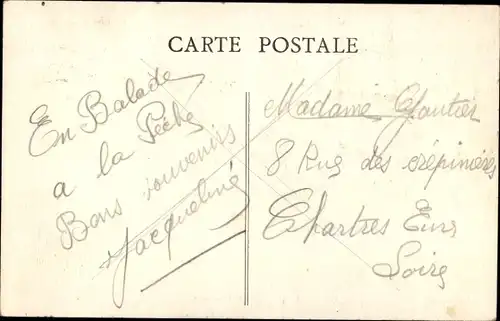 CARTE POSTALE
En Balade
a la Pêche
Bons souvenirs
Jacqueline
Madame
8 Rue des
Chartres Eure
Loire